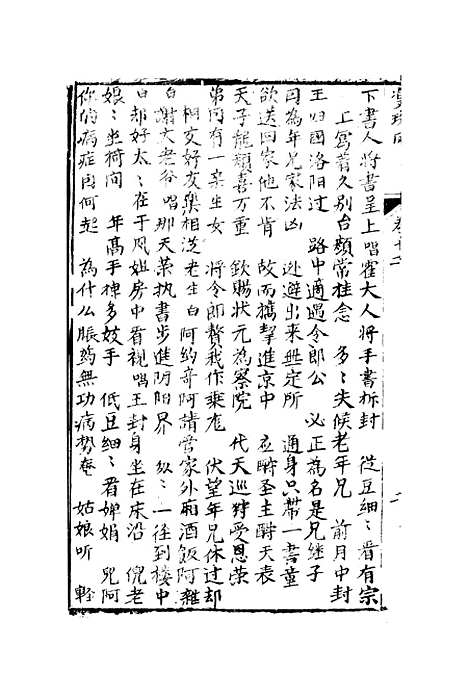 下書人將書呈上唱霍大人將手書拆封 從豆細〻看有宗
上寫着久别台顏常挂念 多〻失候老年兄 前月中封
王歸國洛阳过 路中適遇令郎公 必正為名是兄継子
因為年兄家法凶 迯避出来無定所 通身只帶一書童
欲送回家他不肯 故而携挈進京中 應時圣主時天表
天子龍顏喜万重 欽賜状元為察院 代天巡狩受恩荣
弟因有一亲生女 將令郎贅我作乘龙 伏望年兄休过却
桐文好友樂相逢老生白阿約哥阿請管家外廂酒飯阿雜
白謝大老爷唱那天荣执書步進阴阳界 纵〻一往到楼中
白却好太〻在于风姐房中看視唱王封身坐在床沿 倪老
娘〻坐椅间 年高手棟多妓手 低豆細〻看婵娟 兒阿
你的病症因何起 為什么脹药無功病势奄 姑娘听 輕